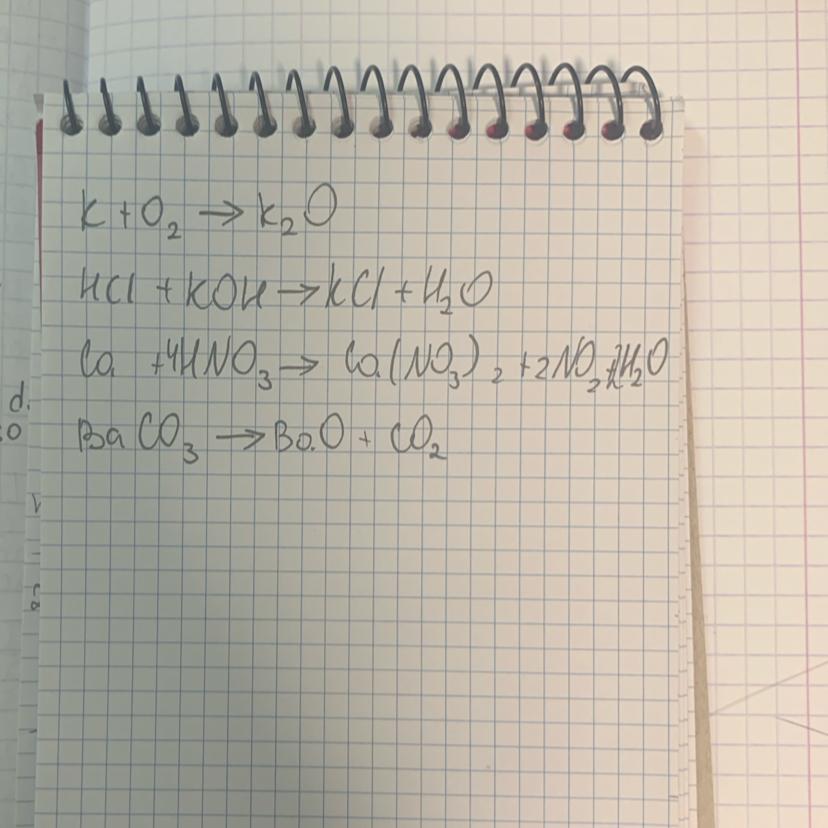 K + O₂ → K₂O
HCl + KOH → KCl + H₂O
Ca + 4HNO₃ → Ca(NO₃)₂ + 2NO₂ + 2H₂O
BaCO₃ → BaO + CO₂